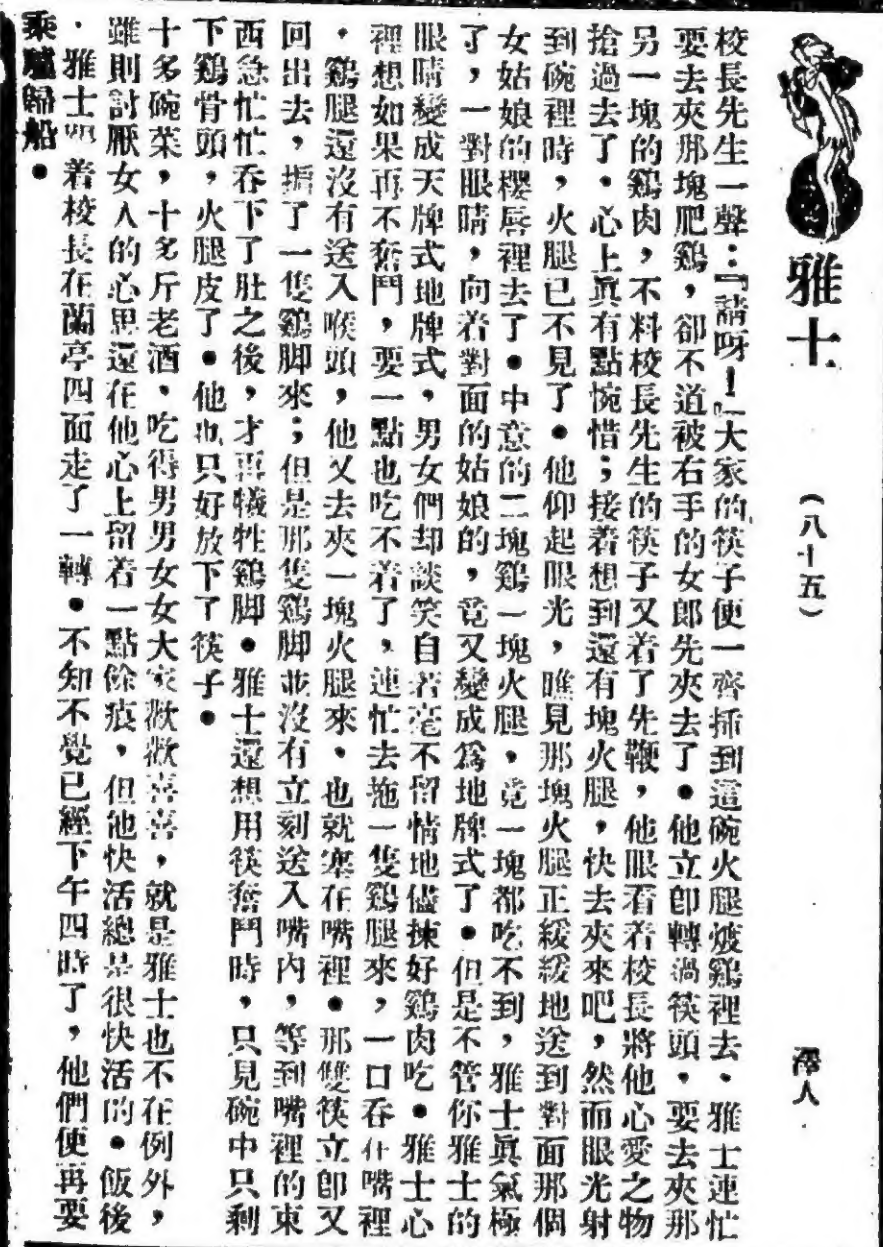 雅士
（八十五）
澤人
校長先生一聲：『請呀！』大家的筷子便一齊揷到這碗火腿燉鷄裡去。雅士連忙
要去夾那塊肥鷄，卻不道被右手的女郞先夾去了。他立卽轉過筷頭，要去夾那
另一塊的鷄肉，不料校長先生的筷子又着了先鞭，他眼看着校長將他心愛之物
搶過去了。心上眞有點惋惜；接着想到還有塊火腿，快去夾來吧，然而眼光射
到碗裡時，火腿已不見了。他仰起眼光，瞧見那塊火腿正緩緩地送到對面那個
女姑娘的櫻唇裡去了。中意的二塊鷄一塊火腿，竟一塊都吃不到，雅士眞氣極
了，一對眼睛，向着對面的姑娘的，竟又變成爲地牌式了。但是不管你雅士的
眼睛變成天牌式地牌式，男女們却談笑自若毫不留情地儘揀好鷄肉吃。雅士心
裡想如果再不奮鬥，要一點也吃不着了，連忙去拖一隻鷄腿來，一口吞在嘴裡
。鷄腿還沒有送入喉頭，他又去夾一塊火腿來，也就塞在嘴裡。那雙筷立卽又
回出去，揩了一隻鷄脚來；但是那隻鷄脚並沒有立刻送入嘴內，等到嘴裡的東
西急忙忙吞下了肚之後，才再犧牲鷄脚。雅士還想用筷奮鬥時，只見碗中只剩
下鷄骨頭，火腿皮了。他也只好放下了筷子。
十多碗菜，十多斤老酒，吃得男男女女大家歡歡喜喜，就是雅士也不在例外，
雖則討厭女人的心思還在他心上留着一點餘痕，但他快活總是很快活的。飯後
。雅士跟着校長在蘭亭四面走了一轉。不知不覺已經下午四時了，他們便再要
乘驢歸船。